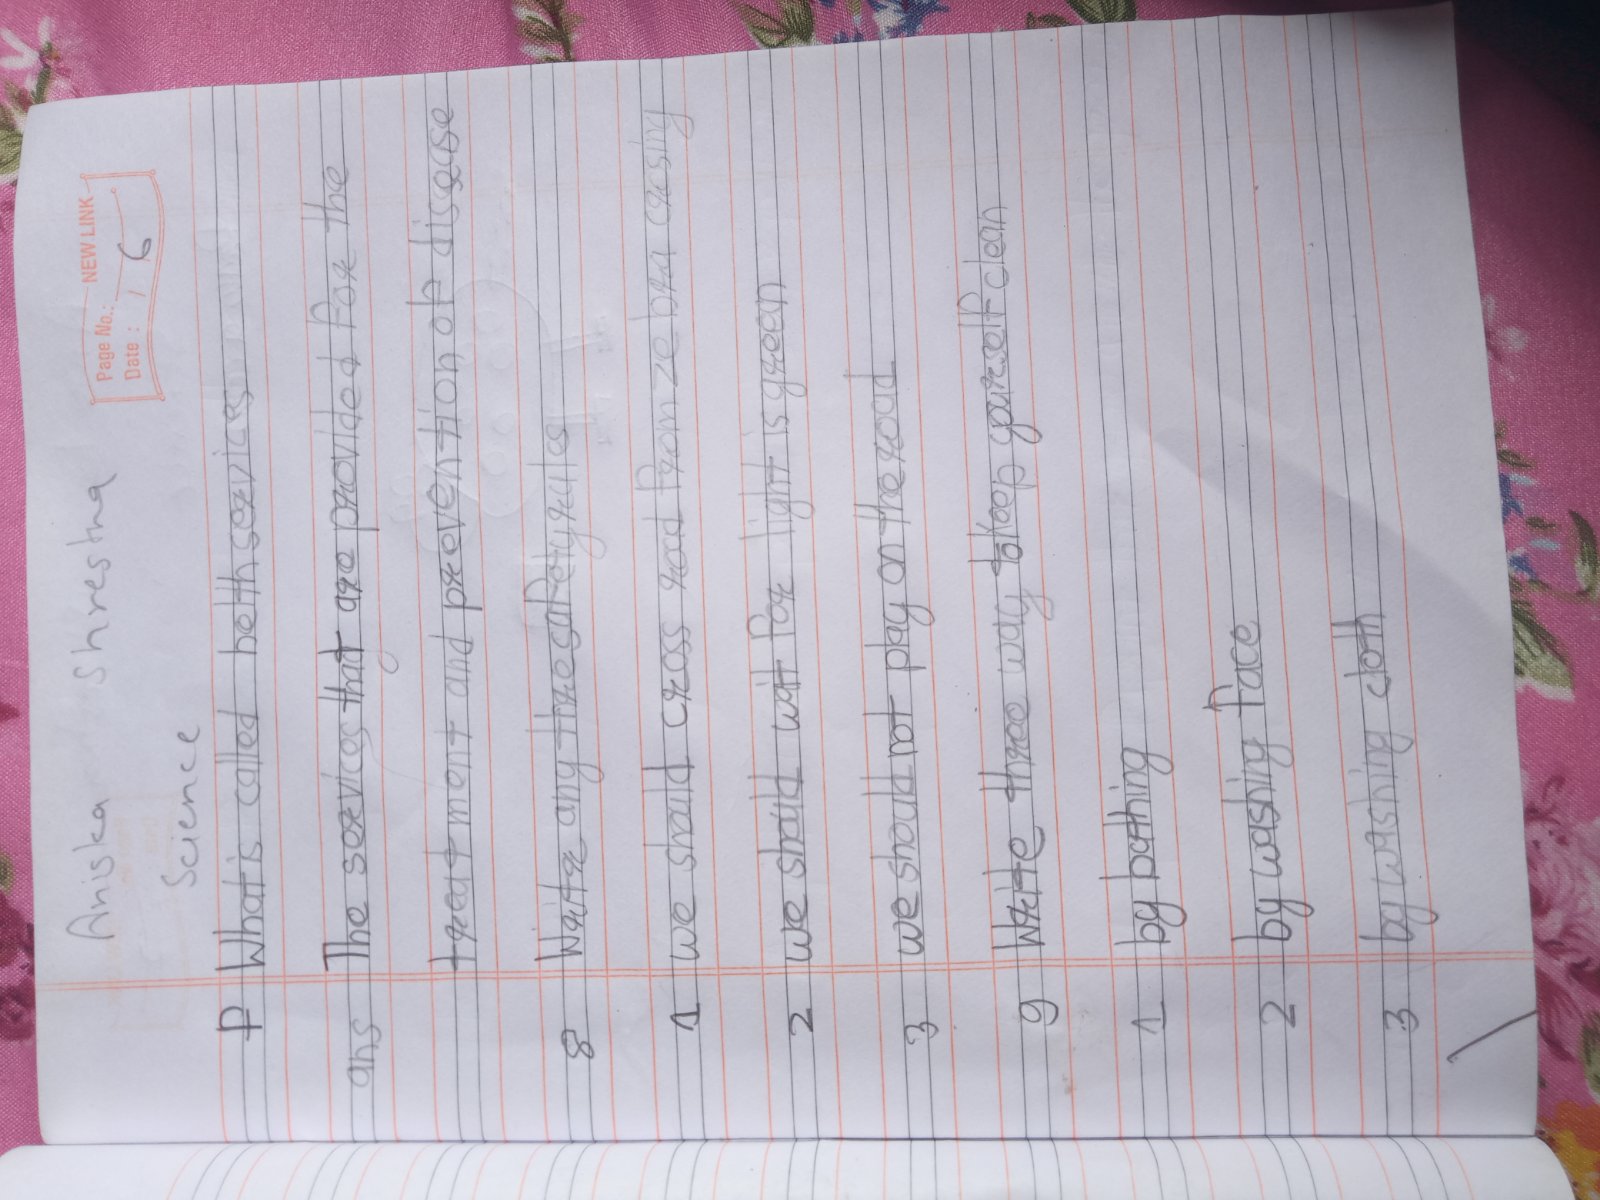 Aniska Shrestha
Science
NEW LINK
Page No.:
Date : 6
What is called helth services
ans The services that are provided for the
treatment and prevention of disease
8 Write any three safety rules
1 we should cross road from zebra crosing
2 we should wait for light is green
3 we should not play on the road
9 Write three way to keep yourself clean
1 by bathing
2 by washing face
3 by washing cloth